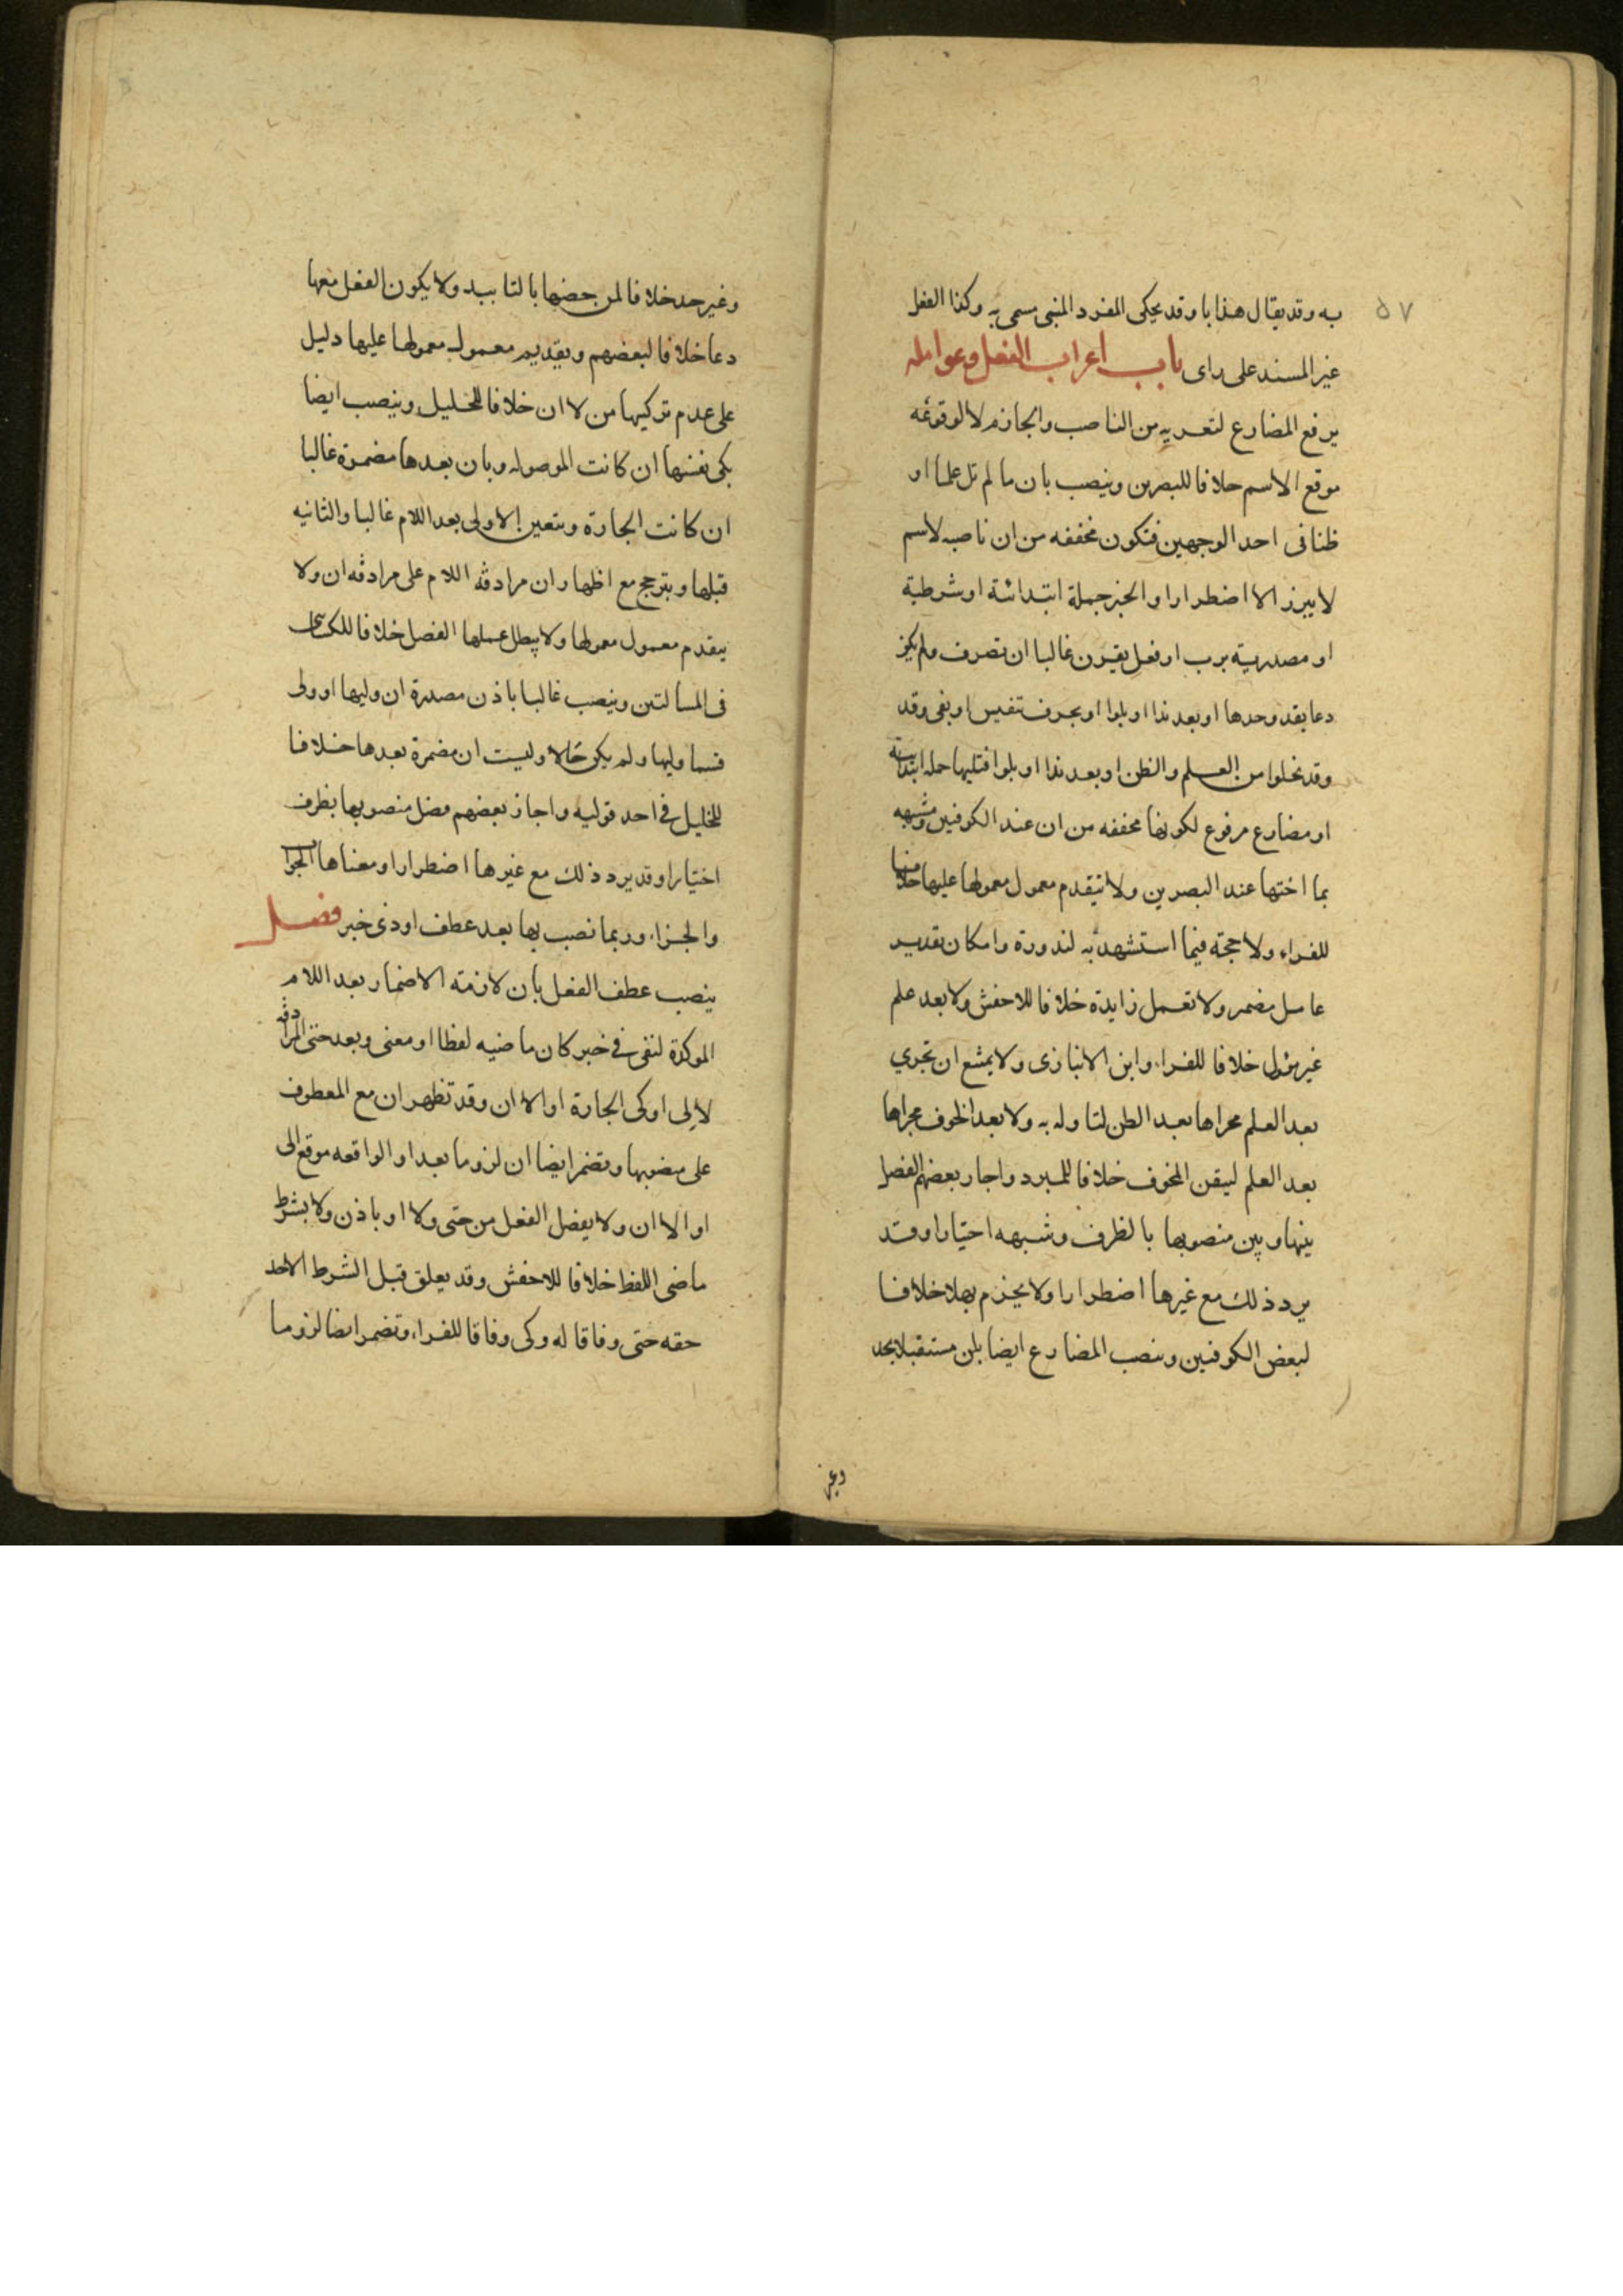 ٥٧
به وقد يقال هذا با وقد يحكى المفرد المبنى مسمى به وكذا الفعل
غير المسند على راى باب اعراب الفعل وعوامله
يرفع المضارع لتعريه من الناصب والجازم لا لوقوعه
موقع الاسم خلافا للبصرين وينصب بان ما لم تل علما او
ظنا فى احد الوجهين فتكون مخففه من ان ناصبه لاسم
لا يبرز الا اضطرارا والخبر جملة ابتدائة او شرطية
او مصدرية برب او فعل يقرن غالبا ان تصرف ولم يكن
دعا بقد وحدها او بعد ندا او بلوا او بحرف تنفيس او نفى وقد
وقد تخلوا من العلم والظن او بعد ندا او بلوا فتليها جمله ابتدائية
او مضارع مرفوع لكونها مخففه من ان عند الكوفين ومشبهه
بما اختها عند البصرين ولا يتقدم معمول معمولها عليها خلافا
للفراء ولا حجة فيما استشهد به لندورة وامكان تقدير
عامل مضمر ولا تعمل زايدة خلافا للاخفش ولا بعد علم
غير مؤل خلافا للفراء وابن الانبارى ولا يمتنع ان تجرى
بعد العلم مجراها بعد الظن لتاوله به ولا بعد الخوف مجراها
بعد العلم ليقن المخوف خلافا للمبرد واجاز بعضهم الفصل
بينها وبين منصوبها بالظرف وشبهه اختيارا وقد
يرد ذلك مع غيرها اضطرارا ولا يجزم بها خلافا
لبعض الكوفيين وينصب المضارع ايضا بلن مستقبلا بحد
وغير
وغير حد خلافا لمن خصها بالتابيد ولا يكون الفعل معها
دعا خلافا لبعضهم وبقديم معمول معمولها عليها دليل
على عدم تركيبها من لا ان خلافا للخليل وينصب ايضا
بكى نفسها ان كانت الموصوله وبان بعدها مضمرة غالبا
ان كانت الجارة ويتعين الاولى بعد اللام غالبا والثانيه
قبلها ويترجح مع اظهار ان مرادفه اللام على مرادفه ان ولا
يتقدم معمول معمولها ولا يبطل عملها الفصل خلافا للكسائى
فى المسالتين وينصب غالبا باذن مصدرة ان وليها او ولى
قسما وليها ولم يكن حالا وليست ان مضمرة بعدها خلافا
للخليل فى احد قوليه واجاز بعضهم فصل منصوبها بظرف
اختيارا وقد يرد ذلك مع غيرها اضطرارا ومعناها الجوا
والجزاء وربما نصب بها بعد عطف او ذى خبر فصل
ينصب عطف الفعل بان لازمة الاضمار بعد اللام
الموكدة لنفى فى خبر كان ماضيه لفظا او معنى وبعد حتى المرادفه
لالى او كى الجارة او الا ان وقد تظهر ان مع المعطوف
على منصوبها وتضمر ايضا ان لزوما بعد او الواقعه موقع الى
او الا ان ولا يفصل الفعل من حتى ولا او باذن ولا بشرط
ماضى اللفظ خلافا للاخفش وقد يعلق قبل الشرط الاخذ
حقه حتى وفاقا له وكى وفاقا للفراء وتضمر ايضا لزوما